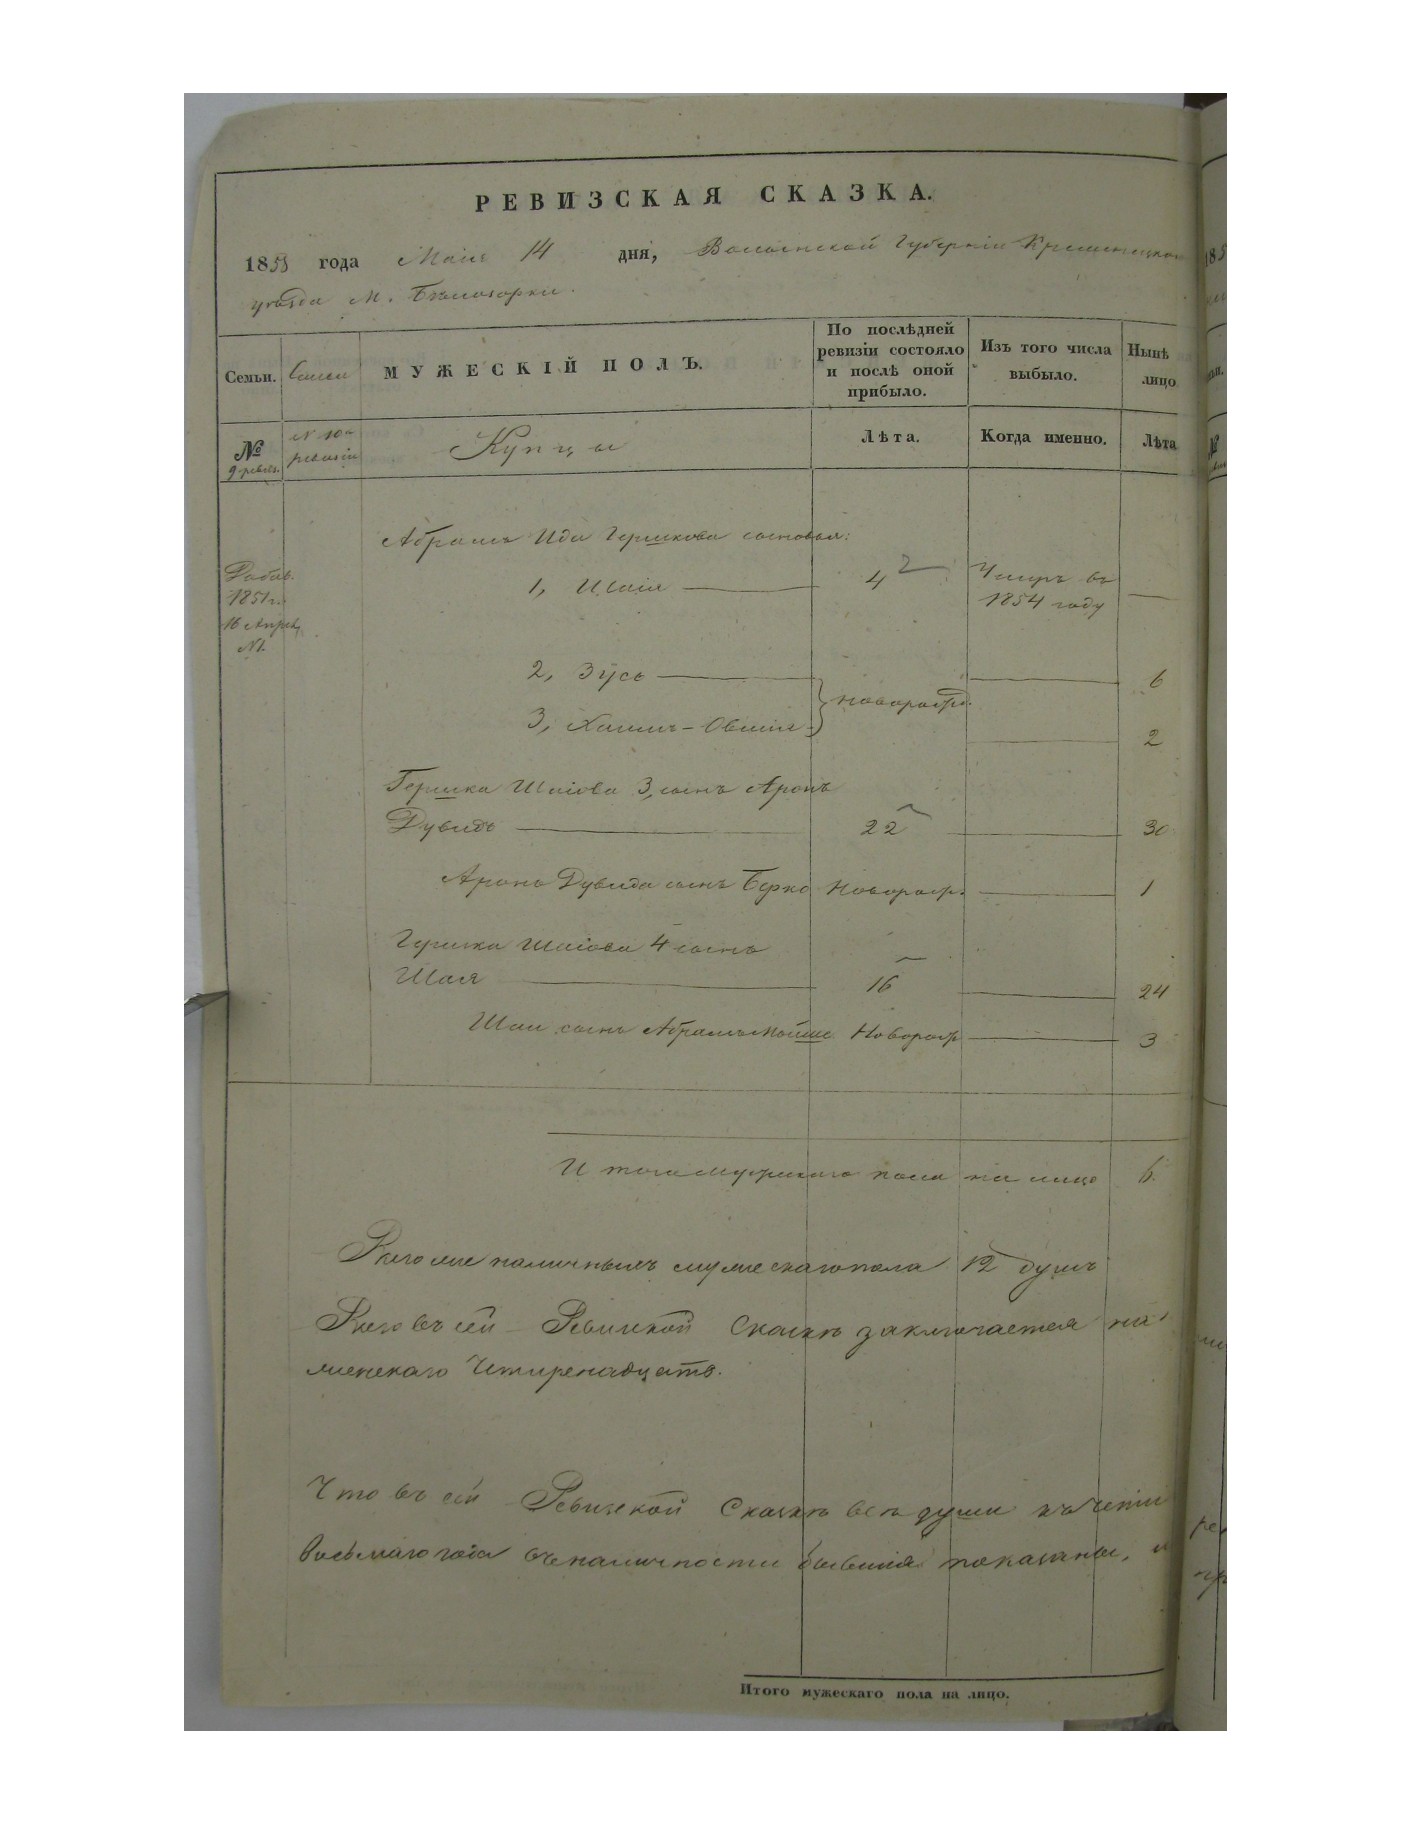 РЕВИЗСКАЯ СКАЗКА.
1858 года Маія 14 дня, Волынской Губерніи Кременецкого
уѣзда М. Бѣлозорки.
Семьи. Семьи МУЖЕСКІЙ ПОЛЪ. По послѣдней ревизіи состояло и послѣ оной прибыло. Изъ того числа выбыло. Нынѣ лицо
№ 9 ревиз. № 10й ревизіи Купцы Лѣта. Когда именно. Лѣта
Абрамъ Иды Гершкова сыновья:
Добав. 1851 г. 16 Апрел. №1.
1, Шаія 4 Умеръ въ 1854 году
2, Зусь 6
3, Хаимъ-Овшія новорожд. 2
Гершка Шаіова 3, сынъ Аронъ
Дувидъ 22 30
Аронъ Дувида сынъ Берко Новорож. 1
Гершка Шаіова 4 сынъ
Шая 16 24
Шаи сынъ Абрамъ Мойше Новорож 3
Итого мужескаго пола на лицо 6.
Всего же наличныхъ мужескаго пола 12 душъ
Всего въ сей Ревизкой Сказкѣ заключается
женскаго Четырнадцать.
Что въ сей Ревизкой Сказкѣ всѣ души
наличности бывшія показаны, и
Итого мужескаго пола на лицо.